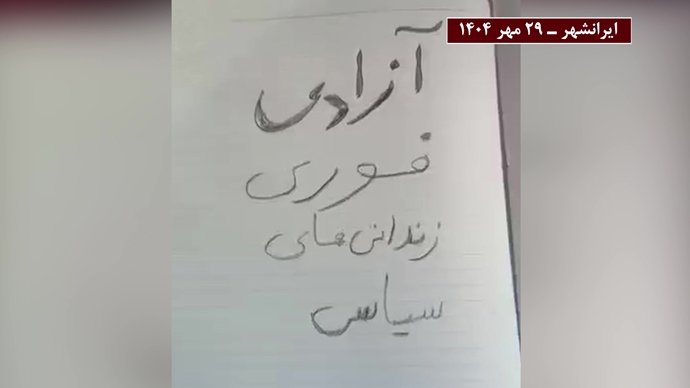 ایرانشهر – ۲۹ مهر ۱۴۰۴
آزادی
فوری
زندانی های
سیاسی